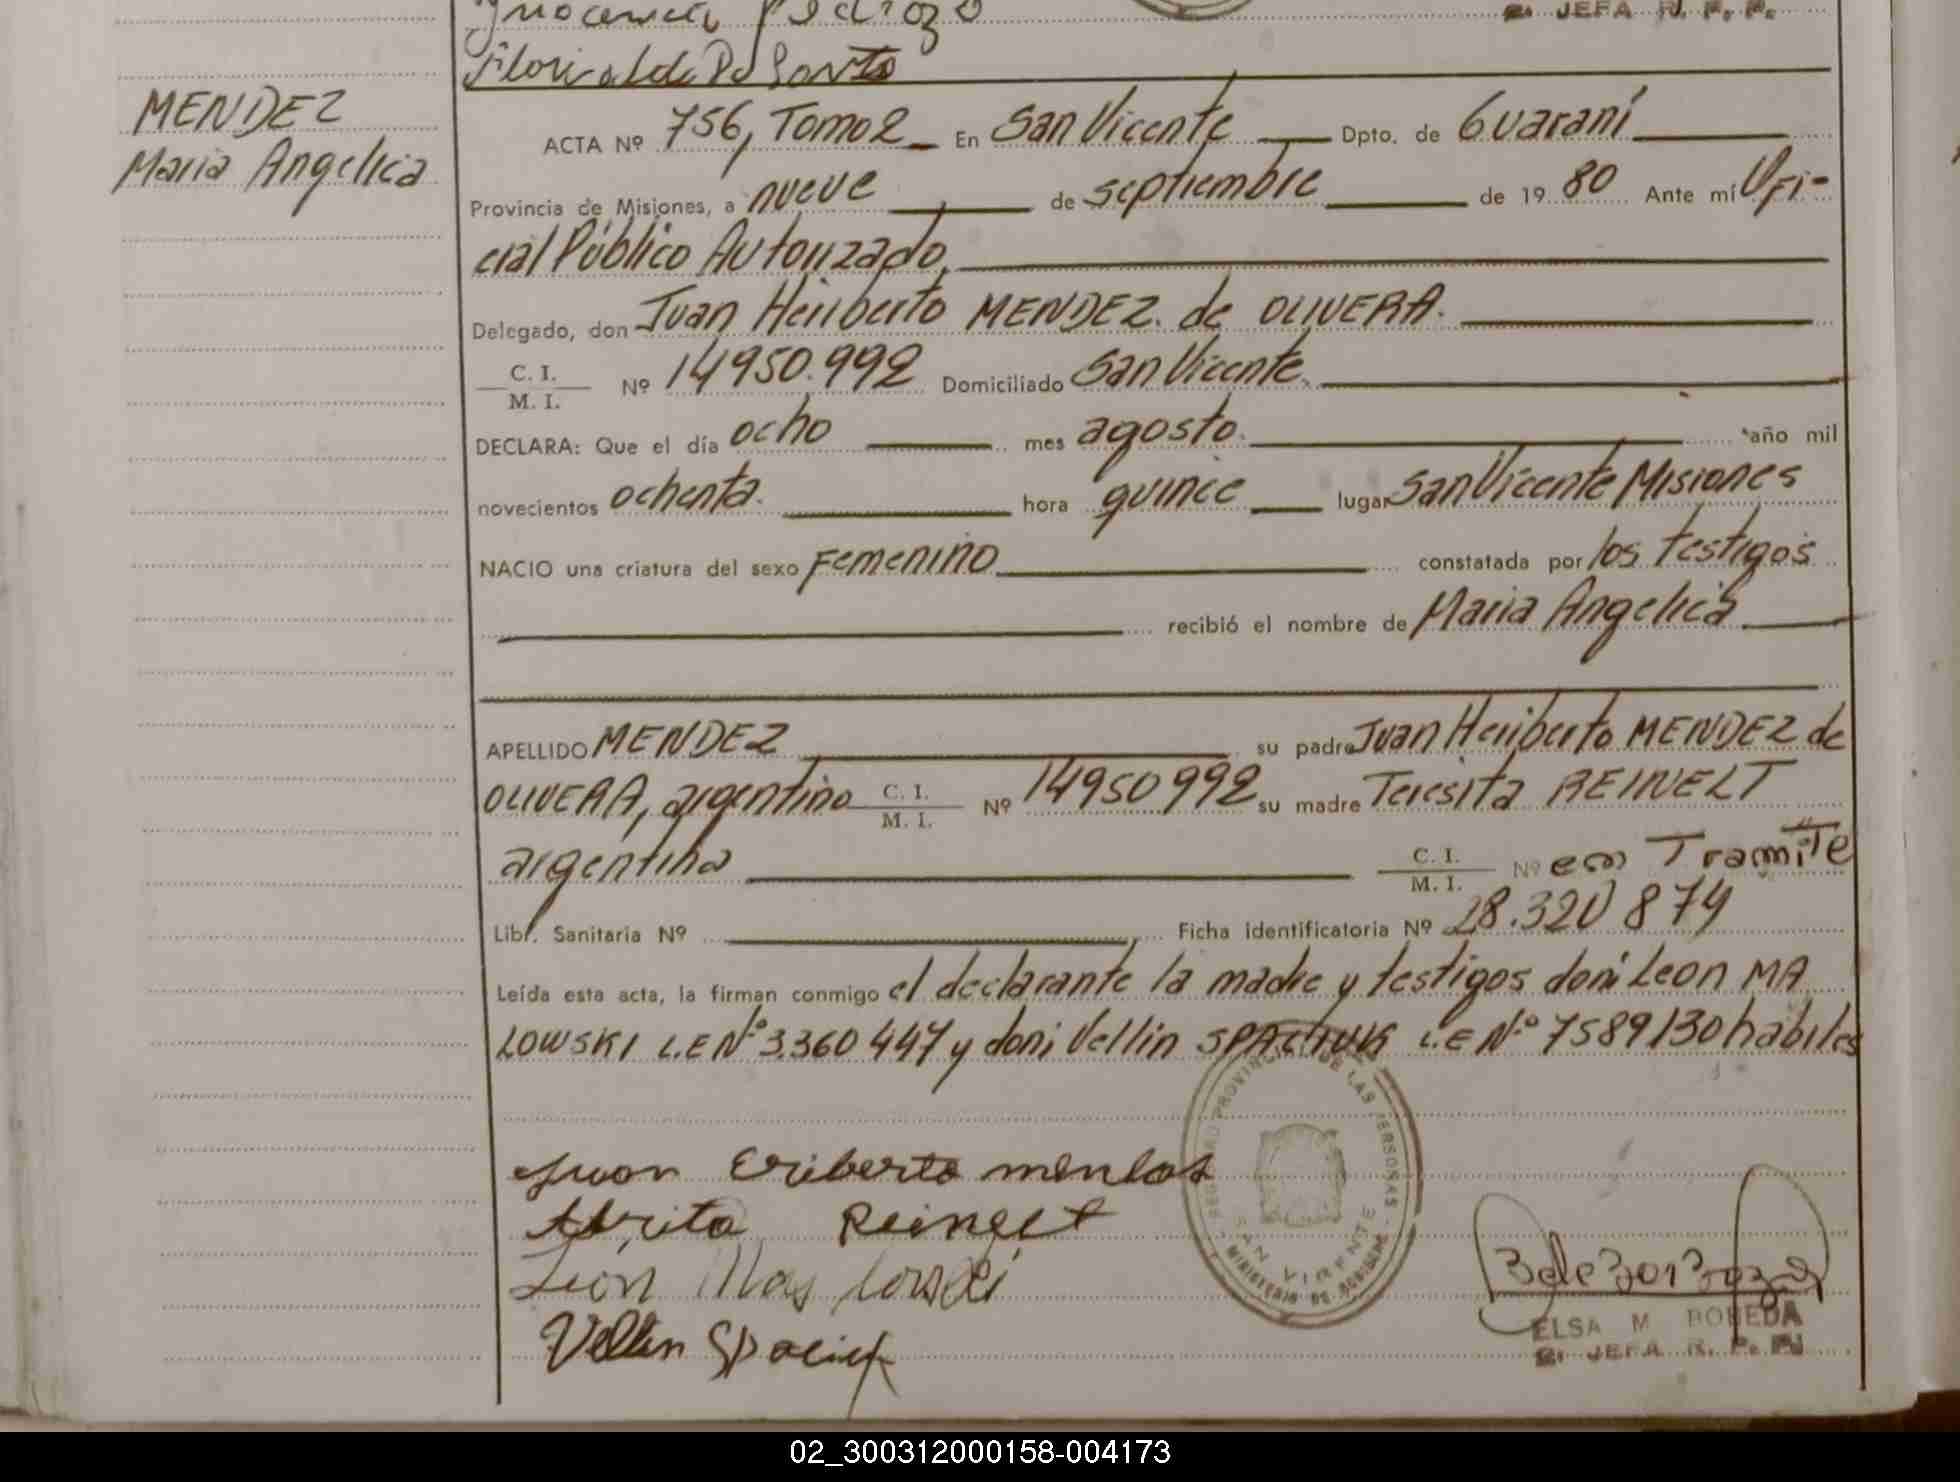 MENDEZ
Maria Angelica
ACTA Nº 756, Tomo 2 En San Vicente Dpto. de Guaraní
Provincia de Misiones, a nueve de septiembre de 19 80 Ante mí Ofi-
cial Público Autorizado,
Delegado, don Juan Heriberto MENDEZ. de OLIVERA.
C. I.
M. I. Nº 14950.992 Domiciliado San Vicente,
DECLARA: Que el día ocho mes agosto. año mil
novecientos ochenta. hora quince lugar San Vicente Misiones
NACIO una criatura del sexo Femenino constatada por los testigos
recibió el nombre de Maria Angelica
APELLIDO MENDEZ su padre Juan Heriberto MENDEZ de
OLIVERA, argentino C. I. M. I. Nº 14950992 su madre Teresita REINELT
argentina C. I. M. I. Nº en Tramite
Libr. Sanitaria Nº Ficha identificatoria Nº 28.320 874
Leída esta acta, la firman conmigo el declarante la madre y testigos don: Leon MA
LOWSKI L.E Nº 3.360 447 y don: Vellin SPACIUK L.E Nº 7589130 habiles
Juan Eriberto
Reinelt
Leon
Vellin
REGISTRO PROVINCIAL DE LAS PERSONAS
SAN VICENTE
MINISTERIO DE GOBIERNO
ELSA M BOBEDA
JEFA R. P. P.
02_300312000158-004173